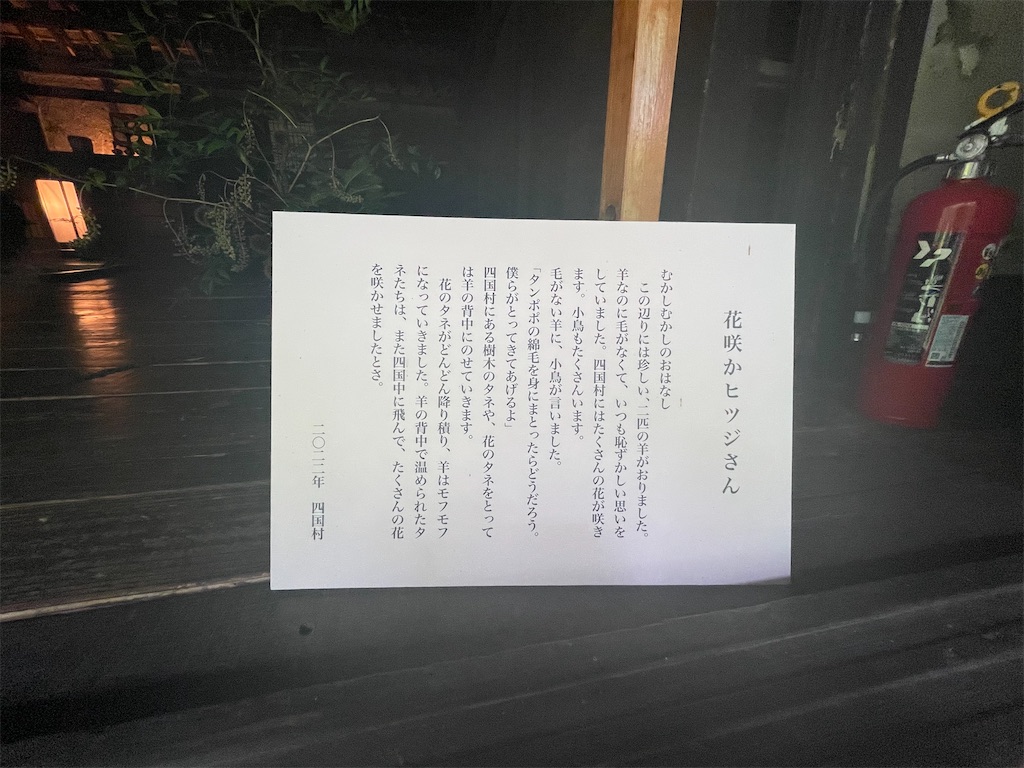 花咲かヒツジさん
むかしむかしのおはなし
この辺りには珍しい、二匹の羊がおりました。
羊なのに毛がなくて、いつも恥ずかしい思いを
していました。四国村にはたくさんの花が咲き
ます。小鳥もたくさんいます。
毛がない羊に、小鳥が言いました。
「タンポポの綿毛を身にまとったらどうだろう。
僕らがとってきてあげるよ」
四国村にある樹木のタネや、花のタネをとって
は羊の背中にのせていきます。
花のタネがどんどん降り積り、羊はモフモフ
になっていきました。羊の背中で温められたタ
ネたちは、また四国中に飛んで、たくさんの花
を咲かせましたとさ。
二〇二二年 四国村